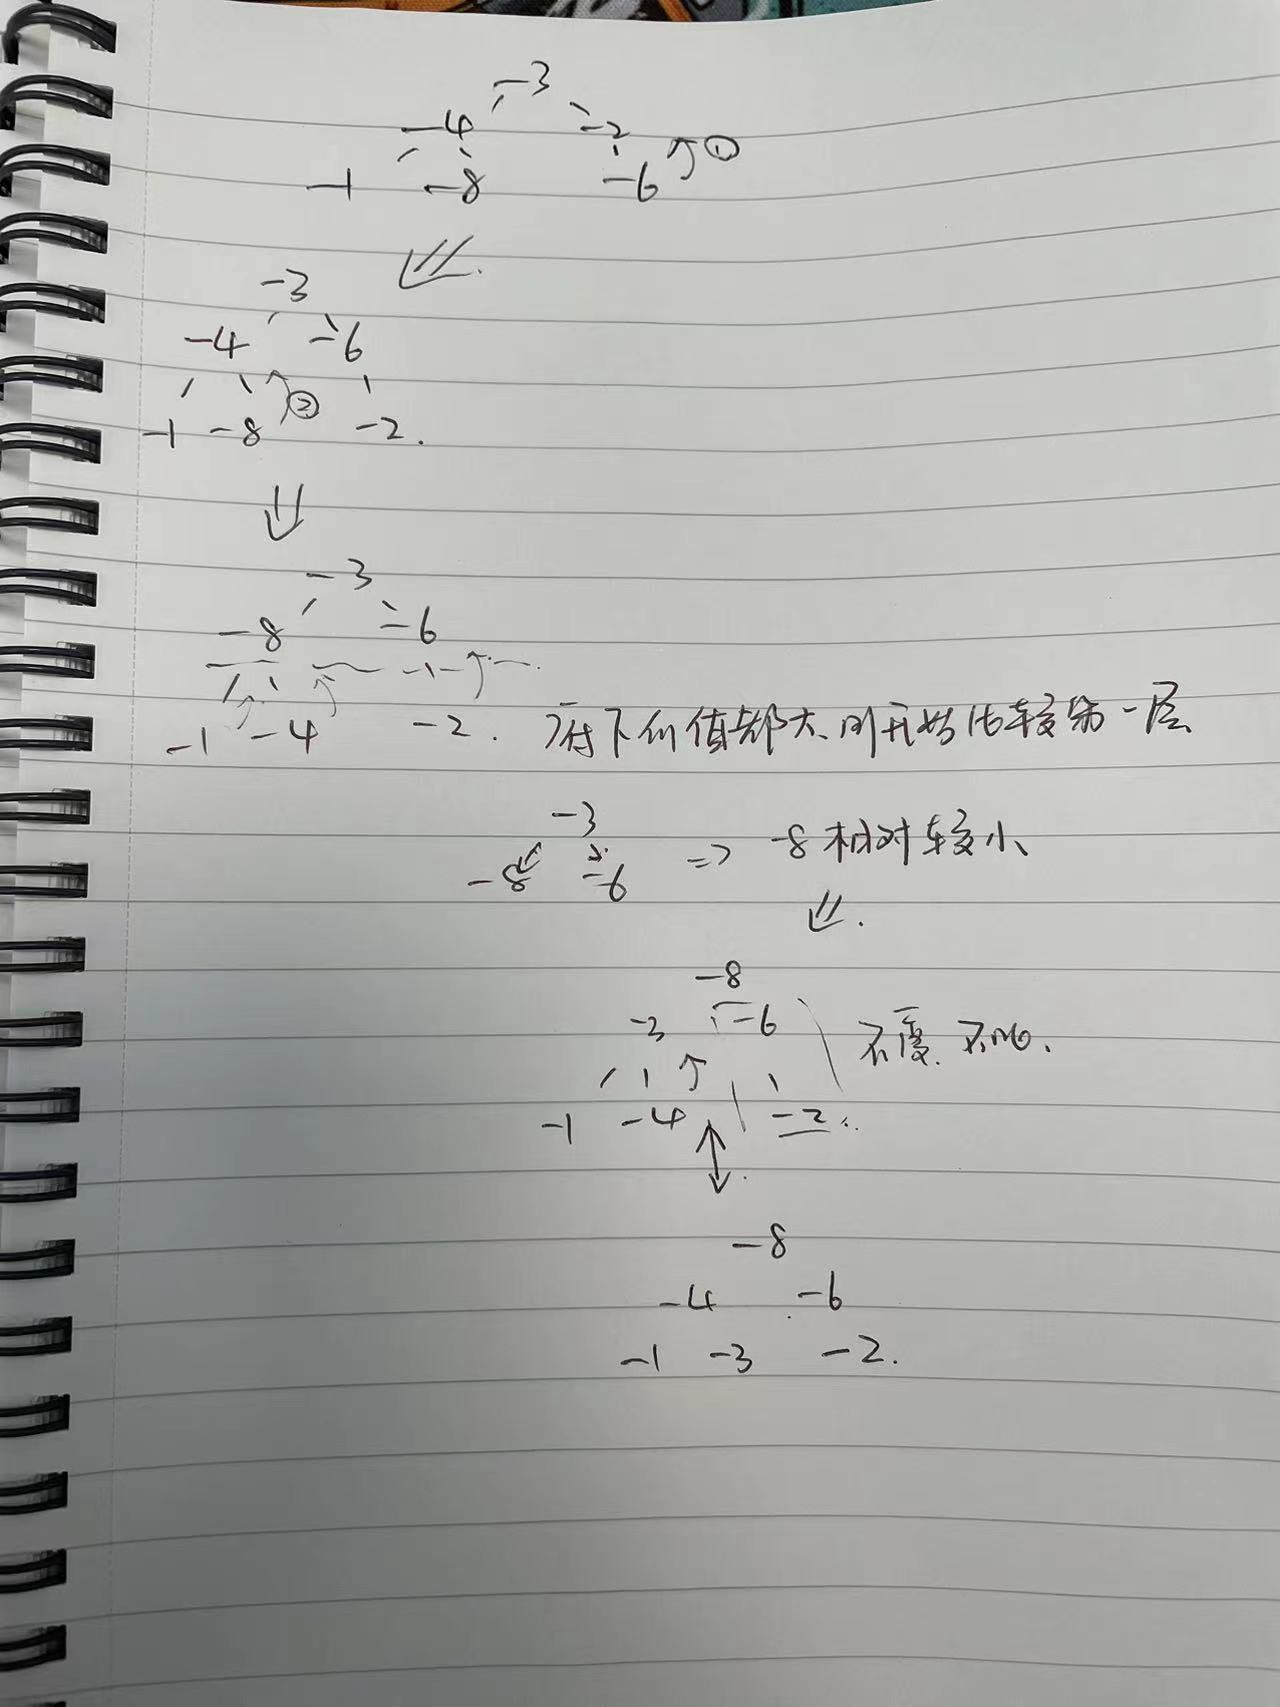 -3
-4 -2
-1 -8 -6 ①
-3
-4 -6
-1 -8 ② -2.
-3
-8 -6
-1 -4 -2. 底下的值都大、则开始比较第一层
-3
-8 -6 => -8相对较小
-8
-3 -6 不变.
-1 -4 -2
-8
-4 -6
-1 -3 -2.